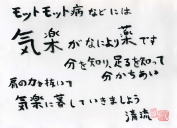 モットモット病などには
気楽がなにより薬です
分を知り、足るを知って
分かちあい
肩の力を抜いて
気楽に暮していきましょう
清流